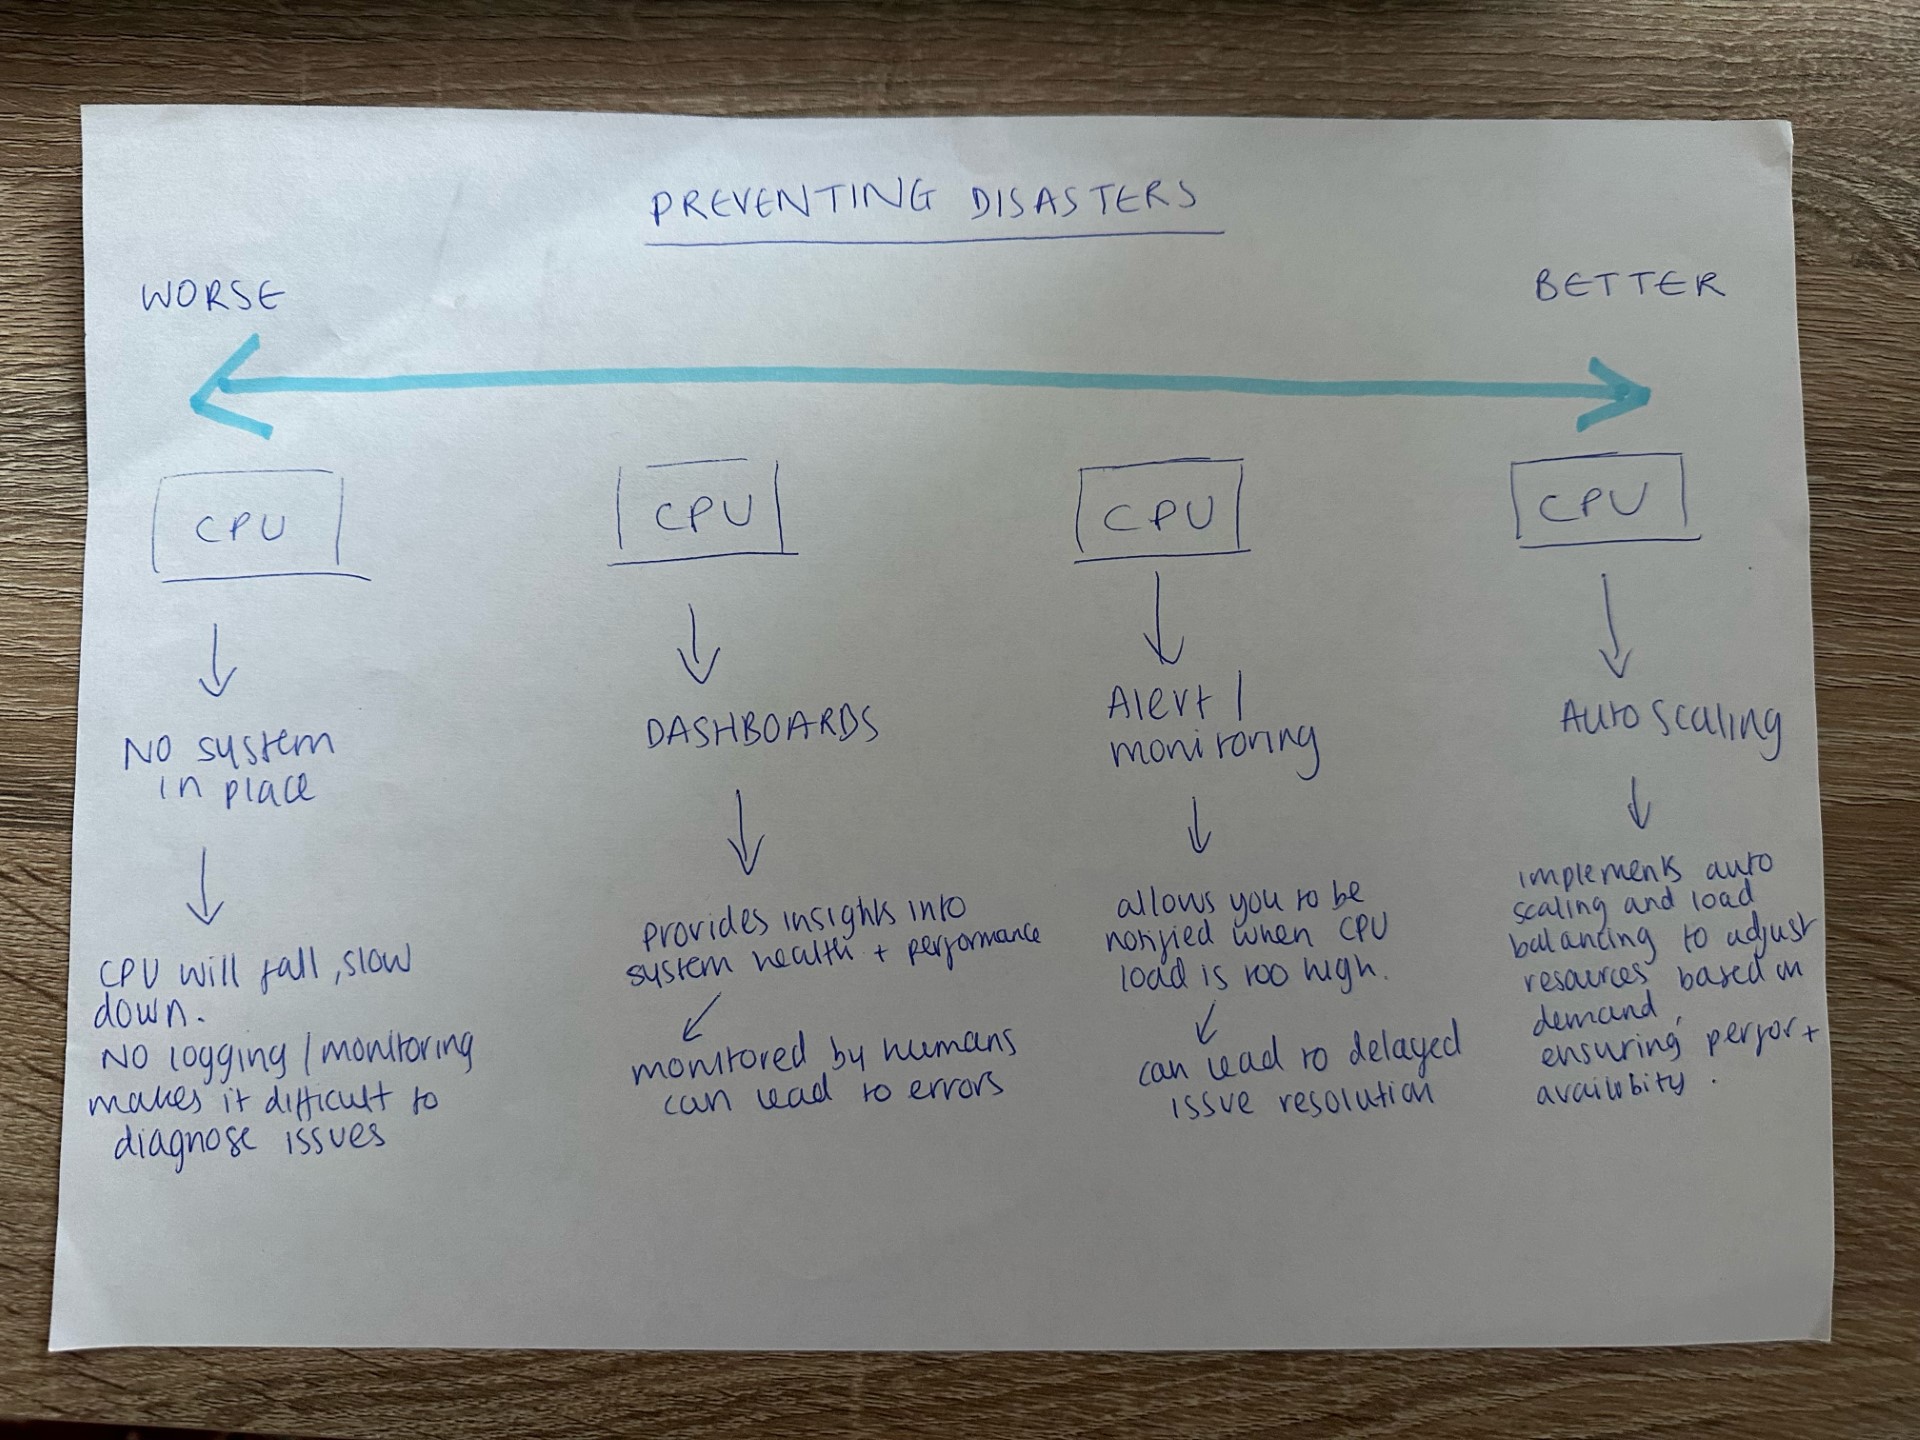 PREVENTING DISASTERS
WORSE
BETTER
CPU
NO system
in place
CPU will fall, slow
down.
NO logging / monitoring
makes it difficult to
diagnose issues
CPU
DASHBOARDS
provides insights into
system health + performance
monitored by humans
can lead to errors
CPU
Alert /
monitoring
allows you to be
notified when CPU
load is too high.
can lead to delayed
issue resolution
CPU
Auto scaling
implements auto
scaling and load
balancing to adjust
resources based on
demand,
ensuring perfor +
availibity.